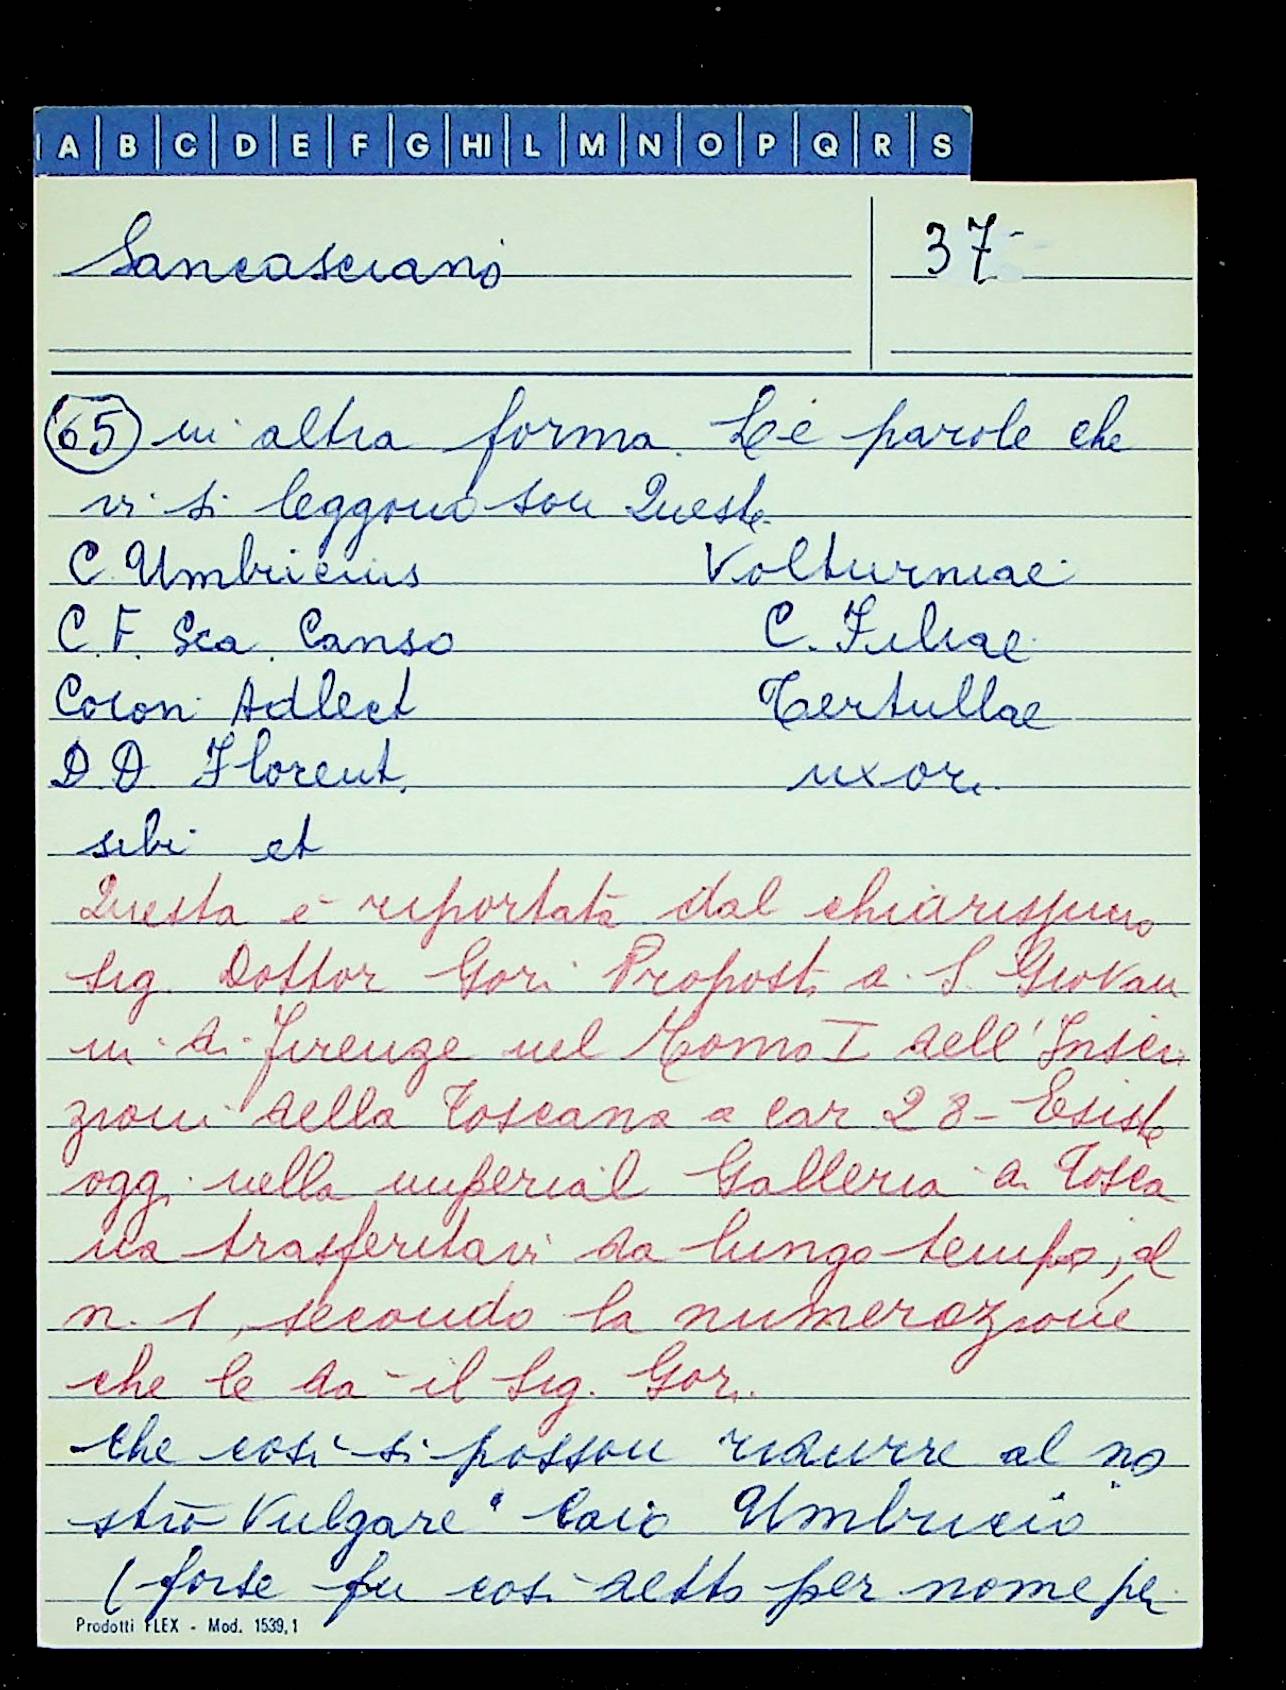 A B C D E F G HI L M N O P Q R S
Sancasciano
37-
65 in altra forma. Le parole che
vi si leggono son Queste
C. Umbricius Volturniae
C. F. Sca. Canso C. Filiae
Coron Adlect Tertullae
D. D. Florent. uxori
sibi et
Questa è riportata dal chiarissimo
Sig. Dottor Gori Proposto a S. Giovan
ni di Firenze nel Tomo I dell'Inscri
zioni della Toscana a car 28- Esiste
oggi nella imperial Galleria di Tosca
na trasferitavi da lungo tempo, al
n. 1, secondo la numerazione
che le da il Sig. Gori.
che così si posson ridurre al no
stro Vulgare "Caio Umbricio"
(forse fu così detto per nome per
Prodotti FLEX - Mod. 1539,1